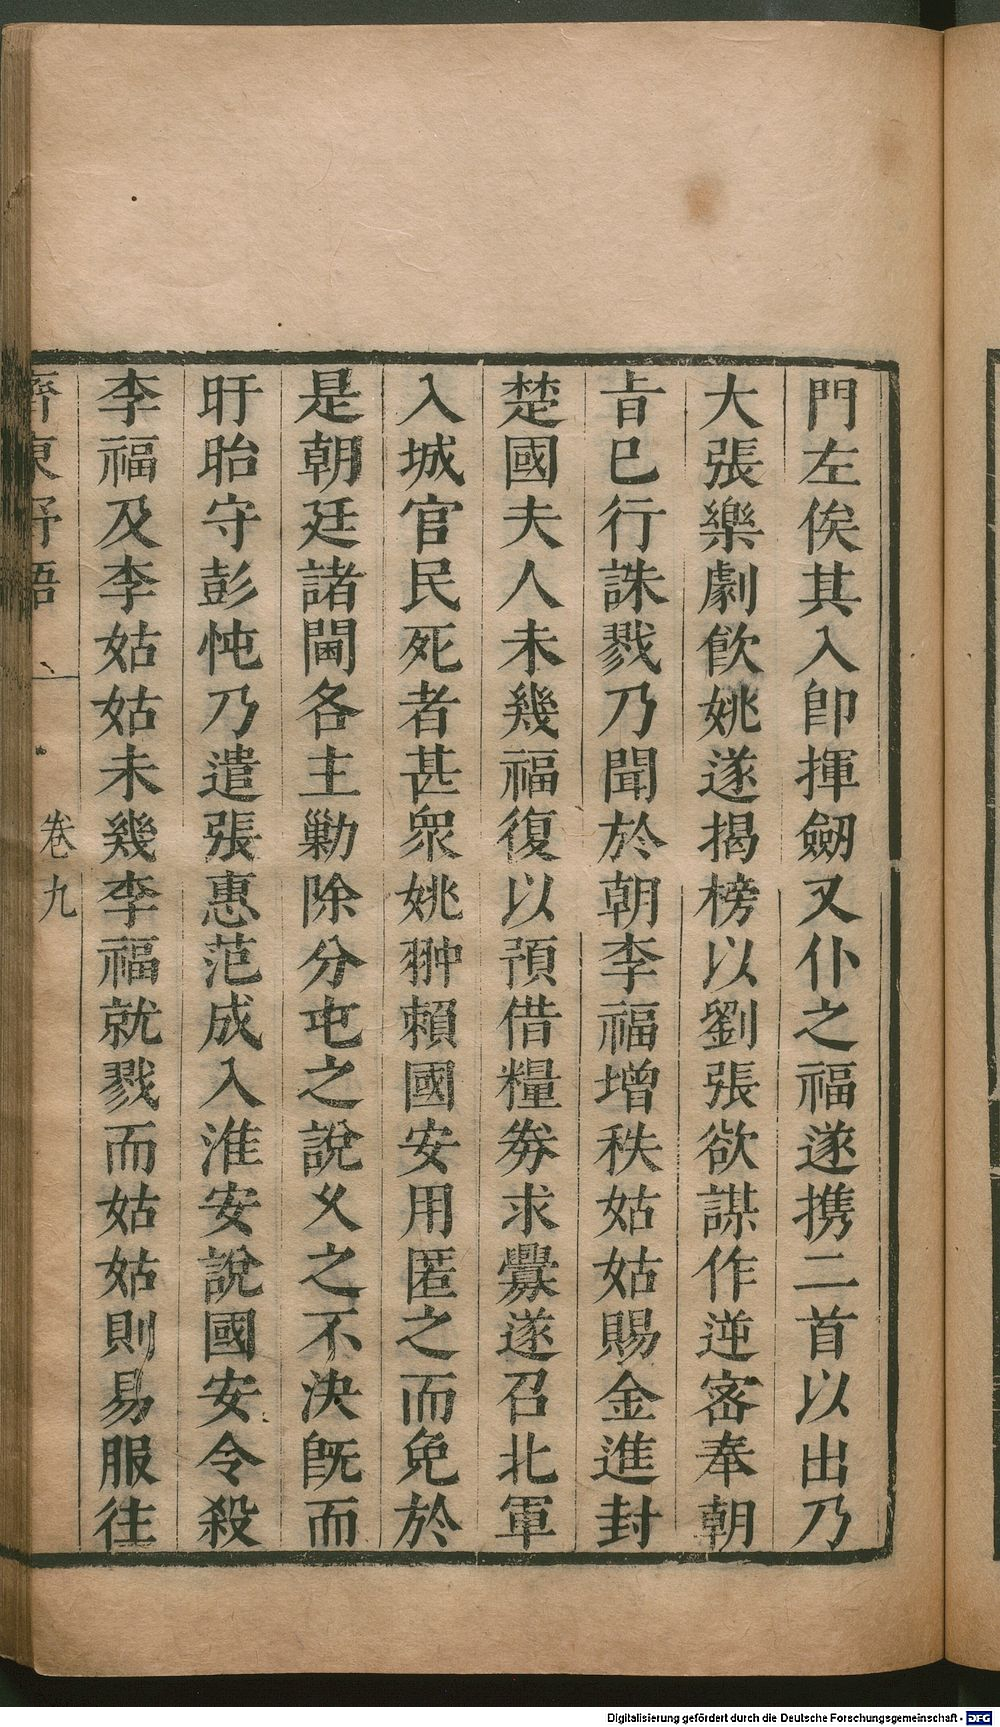 門左俟其入卽揮劒又仆之福遂携二首以出乃
大張樂劇飲姚遂揭榜以劉張欲謀作逆密奉朝
旨已行誅戮乃聞於朝李福增秩姑姑賜金進封
楚國夫人未幾福復以預借糧劵求釁遂召北軍
入城官民死者甚衆姚翀賴國安用匿之而免於
是朝廷諸閫各主勦除分屯之說久之不決旣而
盱眙守彭忳乃遣張惠范成入淮安說國安令殺
李福及李姑姑未幾李福就戮而姑姑則易服往
齊東野語 卷九
Digitalisierung gefördert durch die Deutsche Forschungsgemeinschaft - DFG